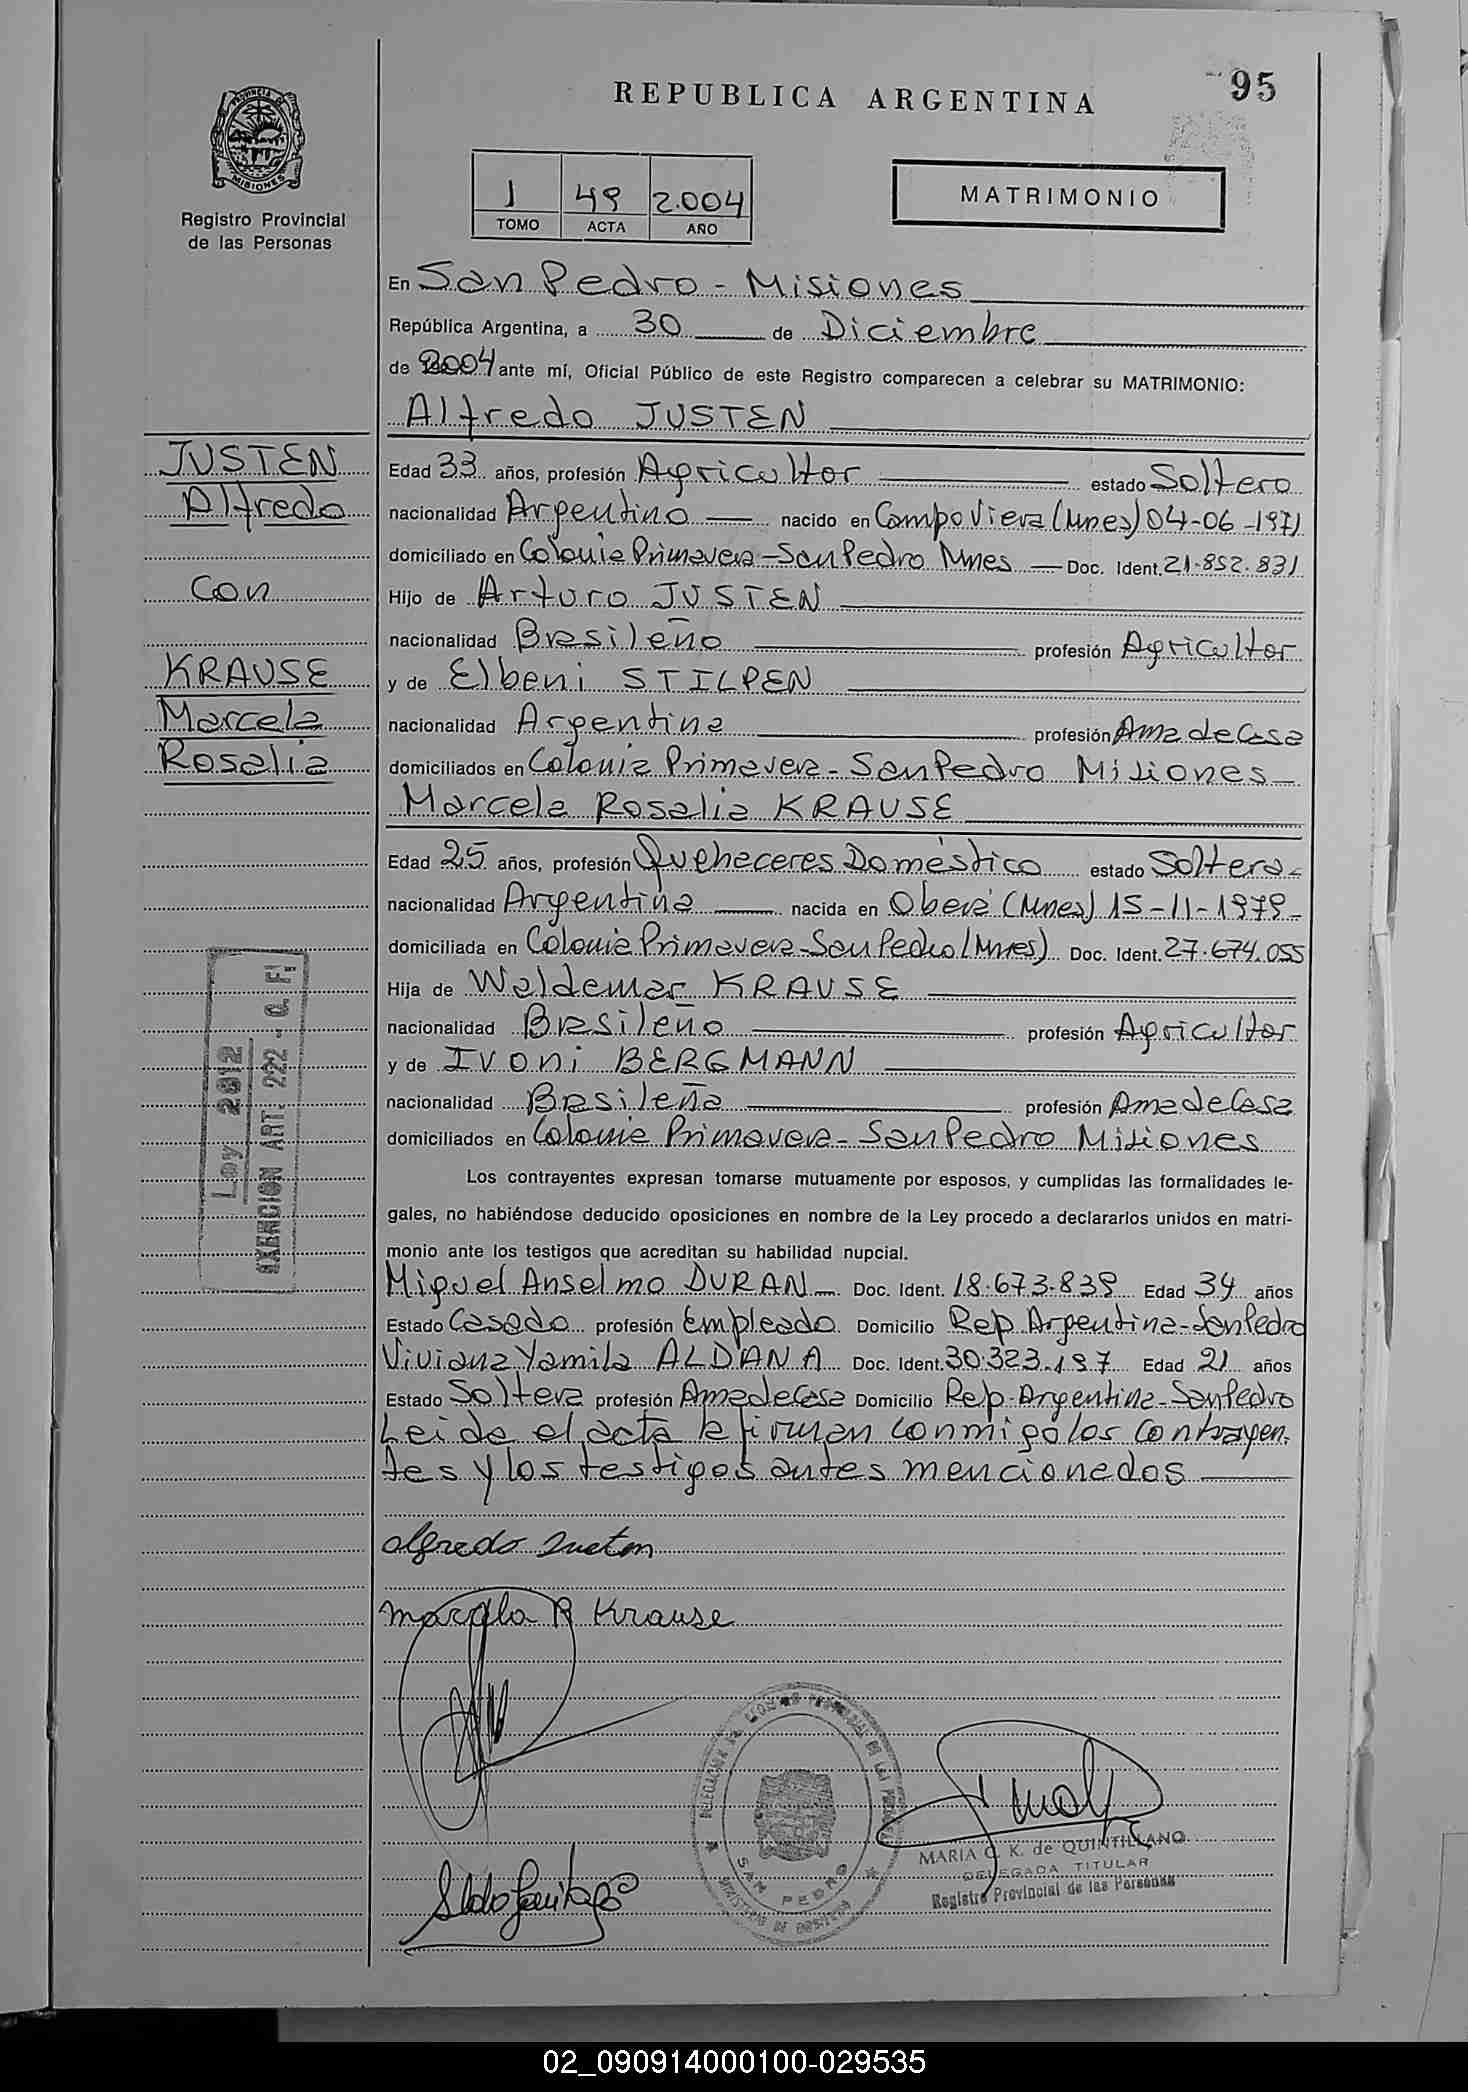 95
REPUBLICA ARGENTINA
PROVINCIA DE
MISIONES
Registro Provincial
de las Personas
1 49 2.004
TOMO ACTA AÑO
MATRIMONIO
En San Pedro - Misiones
República Argentina, a 30 de Diciembre
de 2004 ante mí, Oficial Público de este Registro comparecen a celebrar su MATRIMONIO:
Alfredo JUSTEN
JUSTEN
Alfredo
Con
KRAUSE
Marcela
Rosalia
Edad 33 años, profesión Agricultor estado Soltero
nacionalidad Argentino nacido en Campo Viera (Mnes) 04-06-1971
domiciliado en Colonia Primavera - San Pedro Mnes Doc. Ident. 21.852.831
Hijo de Arturo JUSTEN
nacionalidad Brasileño profesión Agricultor
y de Elbeni STILPEN
nacionalidad Argentina profesión Ama de Casa
domiciliados en Colonia Primavera - San Pedro Misiones
Marcela Rosalia KRAUSE
Edad 25 años, profesión Quehaceres Doméstico estado Soltera
nacionalidad Argentina nacida en Oberá (Mnes) 15-11-1979
domiciliada en Colonia Primavera - San Pedro (Mnes) Doc. Ident. 27.674.055
Hija de Waldemar KRAUSE
nacionalidad Brasileño profesión Agricultor
y de Ivoni BERGMANN
nacionalidad Brasileña profesión Ama de Casa
domiciliados en Colonia Primavera - San Pedro Misiones
Ley 2812
EXENCION ART. 222 - C. F.
Los contrayentes expresan tomarse mutuamente por esposos, y cumplidas las formalidades le-
gales, no habiéndose deducido oposiciones en nombre de la Ley procedo a declararlos unidos en matri-
monio ante los testigos que acreditan su habilidad nupcial.
Miguel Anselmo DURAN Doc. Ident. 18.673.839 Edad 34 años
Estado Casado profesión Empleado Domicilio Rep. Argentina - San Pedro
Viviana Yamila ALDANA Doc. Ident. 30.323.197 Edad 21 años
Estado Soltera profesión Ama de Casa Domicilio Rep. Argentina - San Pedro
Leida el acta la firman conmigo los contrayen-
tes y los testigos antes mencionados
Alfredo Justen
Marcela R Krause
SAN PEDRO
MARIA C. K. de QUINTILLANO
DELEGADA TITULAR
Registro Provincial de las Personas
02_090914000100-029535